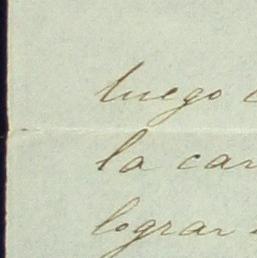 luego
la
lograr